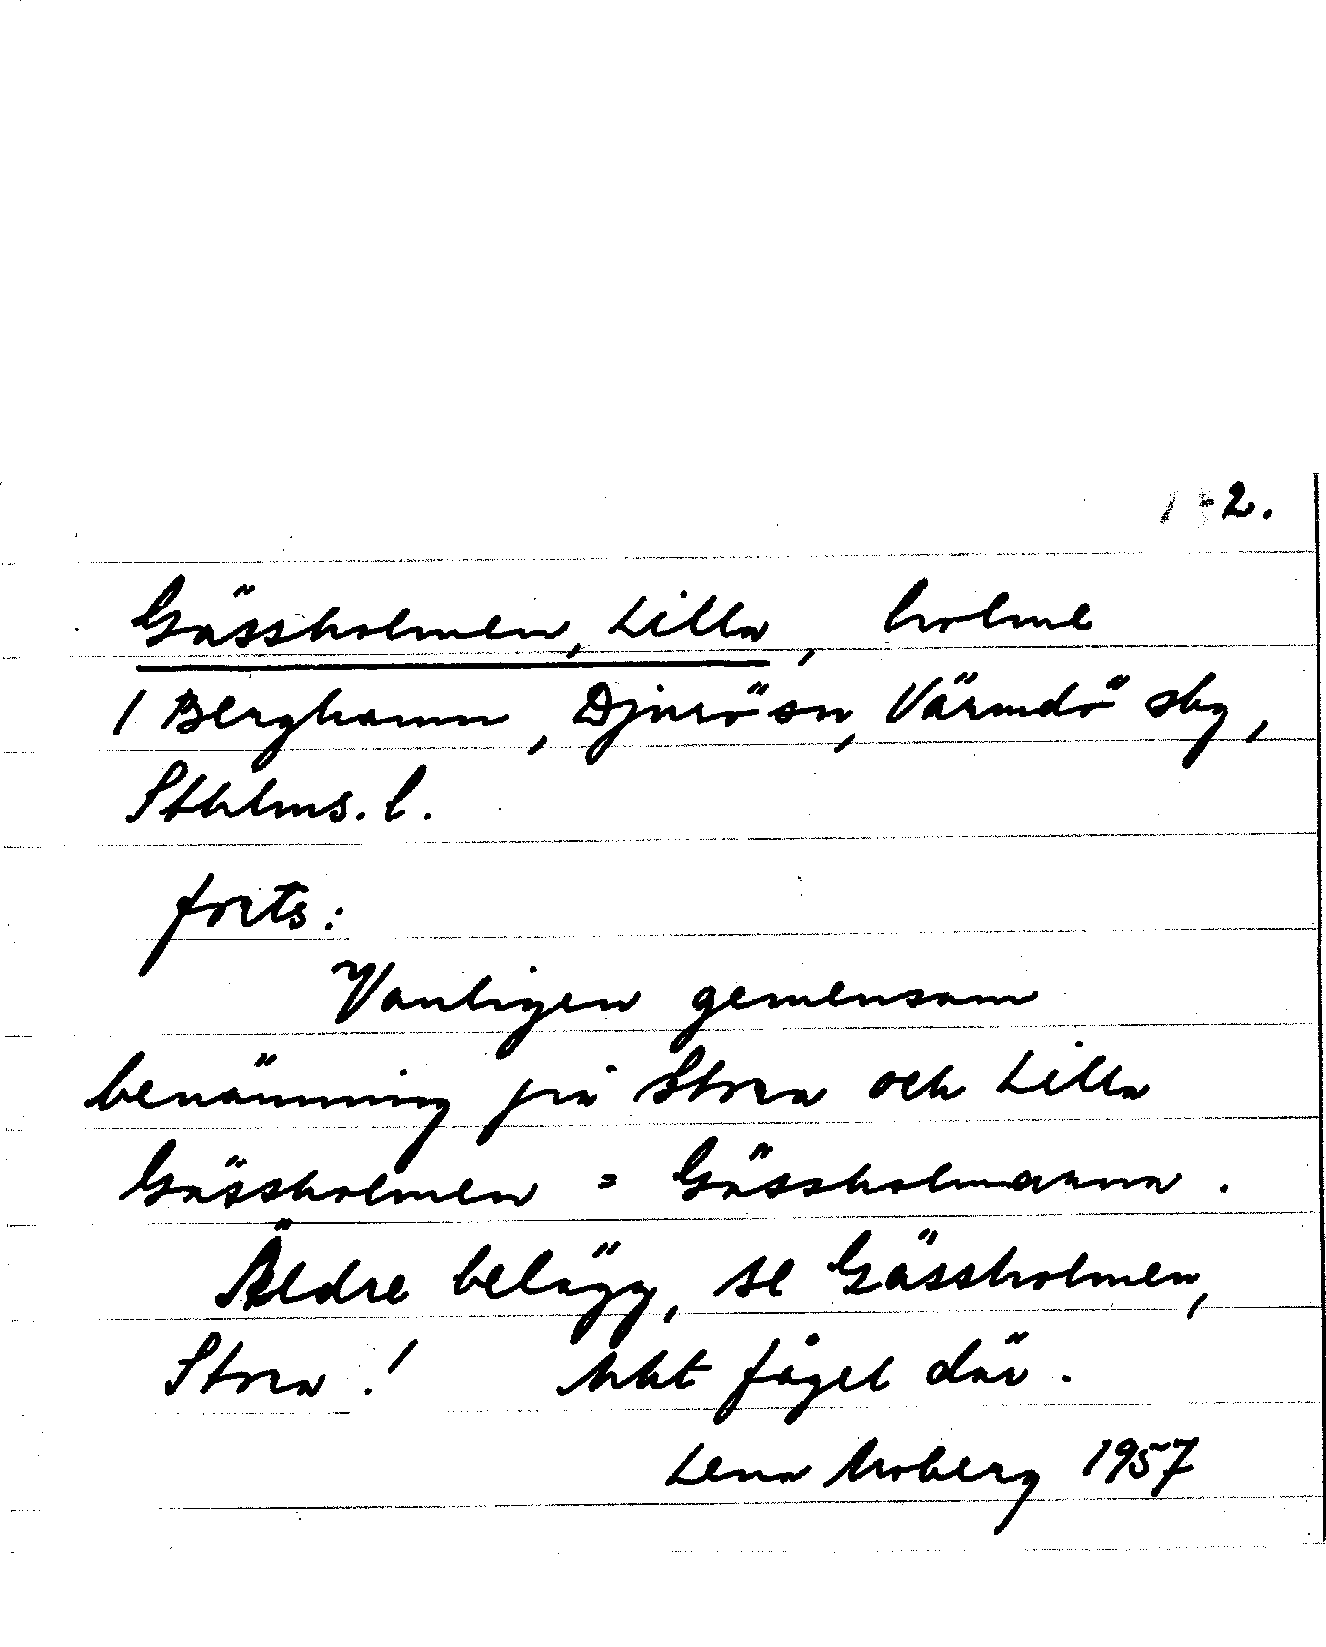 1-2.
Gässholmen, Lilla, holme
/ Berghamn, Djurö sn, Värmdö skg,
Sthlms. l.
forts:
Vanligen gemensam
benämning på Stora och Lilla
Gässholmen = Gässholmarna.
Äldre belägg, se Gässholmen,
Stora! Mkt fågel där.
Lena Moberg 1957